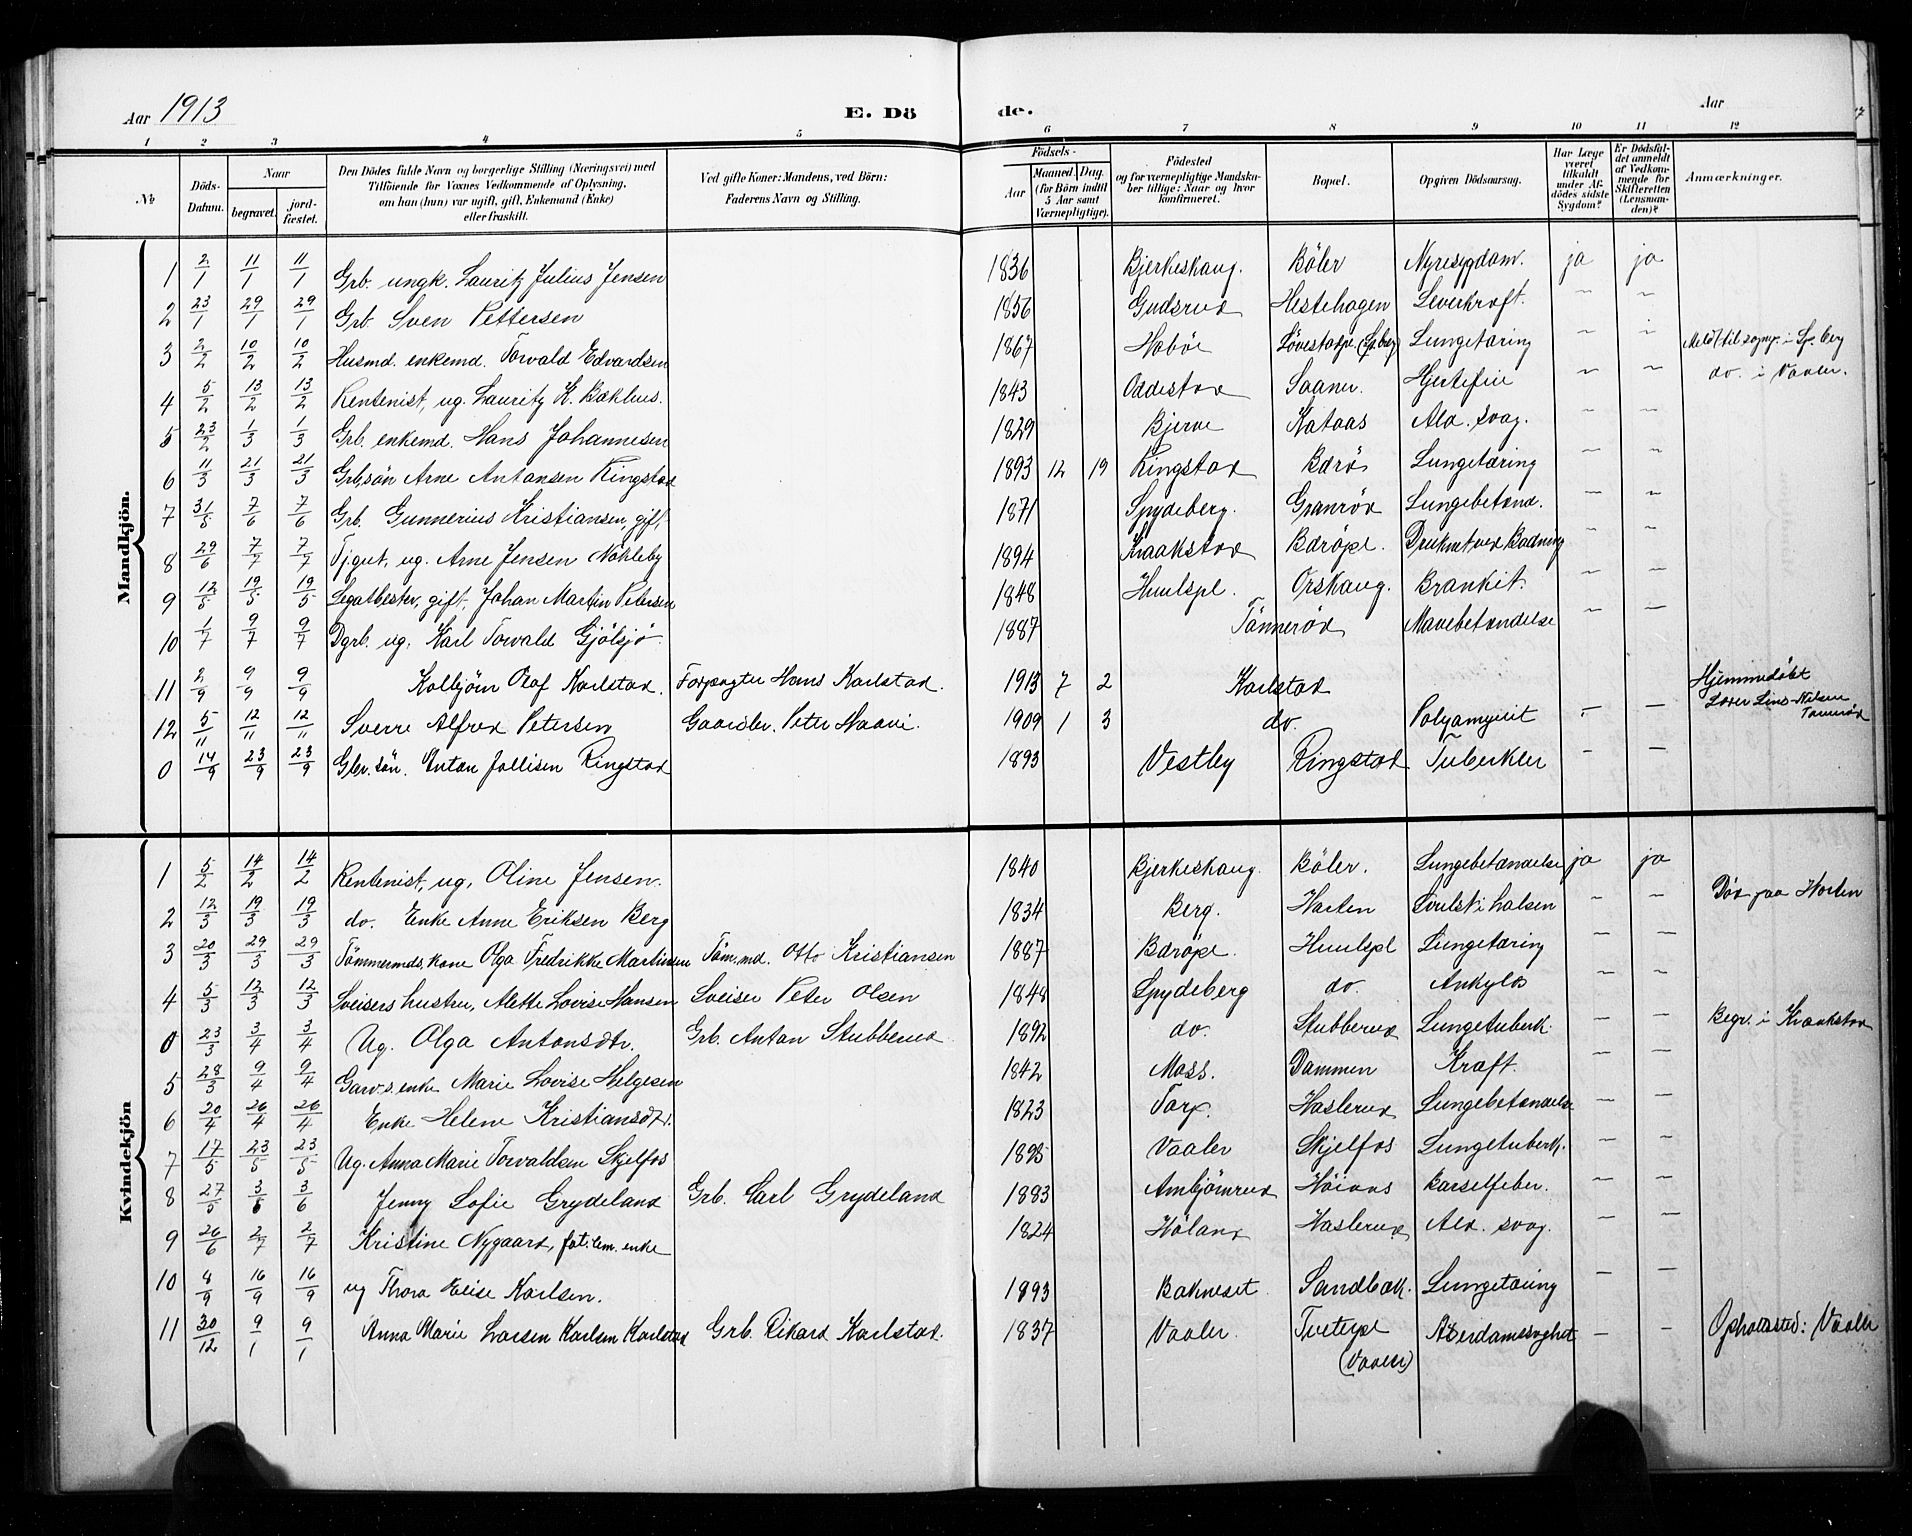 Aar 1913 E. Dö de. Aar
1 2 3 4 5 6 7 8 9 10 11 12
№ Döds-Datum. Naar begravet. jord-fæstet. Den Dödes fulde Navn og borgerlige Stilling (Næringsvei) med Tilföiende for Voxnes Vedkommende af Oplysning, om han (hun) var ugift, gift, Enkemand (Enke) eller fraskilt. Ved gifte Koner: Mandens, ved Börn: Faderens Navn og Stilling. Födsels- Aar Maaned. Dag. (for Börn indtil 5 Aar samt Værnepligtige). Födested og for værnepligtige Mandskaber tillige: Naar og hvor konfirmeret. Bopæl. Opgiven Dödsaarsag. Har Læge været tilkaldt under Afdödes sidste Sygdom? Er Dödsfaldet anmeldt af Vedkommende for Skifteretten (Lensmanden)? Anmærkninger.
Mandkjön.
1 2/1 11/1 11/1 Grb. ungk. Lauritz Julius Jensen 1836 Bjerkeskaug. Böler Nyresygdom. ja ja
2 23/1 29/1 29/1 Grb. Sven Pettersen 1856 Gudsrud Hestehagen Leverkræft. — —
3 2/2 10/2 10/2 Husmd. enkemd. Torvald Edvardsen 1867 Haböe Lövestadpl. (Sp.berg) Lungetæring — — Meldt til sognep. i Sp.berg
4 5/2 13/2 13/2 Rentenist, ug. Lauritz K. Bakhus. 1843 Oddestad Saaner. Hjertefeil — — do. i Vaaler.
5 23/2 1/3 1/3 Grb. enkemd. Hans Johannesen 1829 Bjerve Kataas Ald. svag. — —
6 11/3 21/3 21/3 Grb.sön Arne Antonsen Ringstad 1893 12 19 Ringstad Bdrö Lungetæring — —
7 31/5 7/6 7/6 Grb. Gunnerius Kristiansen, gift, 1871 Spydeberg. Granröd Lungebetænd. — —
8 29/6 7/7 7/7 Tj.gut, ug. Arne Jensen Nökleby 1894 Kraakstad Bdröpl. Druknet ved Badning — —
9 12/5 19/5 19/5 Legatbesty, gift, Johan Martin Petersen 1848 Huulspl. Orskaug. Bronkit. — —
10 1/7 9/7 9/7 Dgrb. ug. Karl Torvald Gjölsjö. 1887 Tönneröd Mavebetændelse — —
11 2/9 9/9 9/9 Kolbjörn Olaf Karlstad. Forpagter Hans Karlstad. 1913 7 2 Karlstad Hjemmedöbt
12 5/11 12/11 12/11 Sverre Alfred Petersen Gaardbr. Peter Haavi. 1909 1 3 do. Polyomyelit — — Lærer Nilsen Tönneröd
0 14/9 23/9 23/9 Gbr. sön. Anton Jollisen Ringstad 1893 Vestby Ringstad Tuberkler — —
Kvindekjön
1 5/2 14/2 14/2 Rentenist, ug. Oline Jensen. 1840 Bjerkeskaug. Böler. Lungebetændelse ja ja
2 12/3 19/3 19/3 do. Enke Anne Eriksen Berg 1834 Berg. Horten Svulst i halsen — — Död paa Horten
3 20/3 29/3 29/3 Tömmermds. kone Olga Fredrikke Martinsen Töm.md. Otto Kristiansen 1887 Bdröpl. Huulspl Lungetæring — —
4 5/3 12/3 12/3 Sveisers hustru, Alette Lovise Hansen Sveiser Peter Olsen 1848 Spydeberg do. Ankylos — —
0 23/3 3/4 3/4 Ug. Olga Antonsdtr. Grb. Anton Stubberud 1892 do. Stubberud Lungetuberk. — — Begr. i Kraakstad
5 28/3 9/4 9/4 Garv.s enke Marie Lovise Helgesen 1842 Moss. Dammen Kræft. — —
6 20/4 26/4 26/4 Enke Helene Kristiansdt. 1823 Torp. Haslerud Lungebetændelse — —
7 17/5 23/5 23/5 Ug. Anna Marie Torvaldsen Skjelfos 1895 Vaaler Skjelfos Lungetuberk. — —
8 27/5 3/6 3/6 Jenny Sofie Grydeland Grb. Carl Grydeland 1883 Ambjörnrud Höiaas Barselfeber. — —
9 26/6 2/7 2/7 Kristine Nygaard, fat. lem. enke 1824 Höland Haslerud Ald. svag. — —
10 8/9 16/9 16/9 ug Thora Elise Karlsen. 1893 Bakneset. Sandbæk. Lungetæring — —
11 30/12 9/1 9/1 Anna Marie Larsen Karlsen Karlstad Grb. Rikard Karlstad. 1837 Vaaler. Tveterpl (Vaaler) Alderdomssvaghet — — Opholdssted: Vaaler